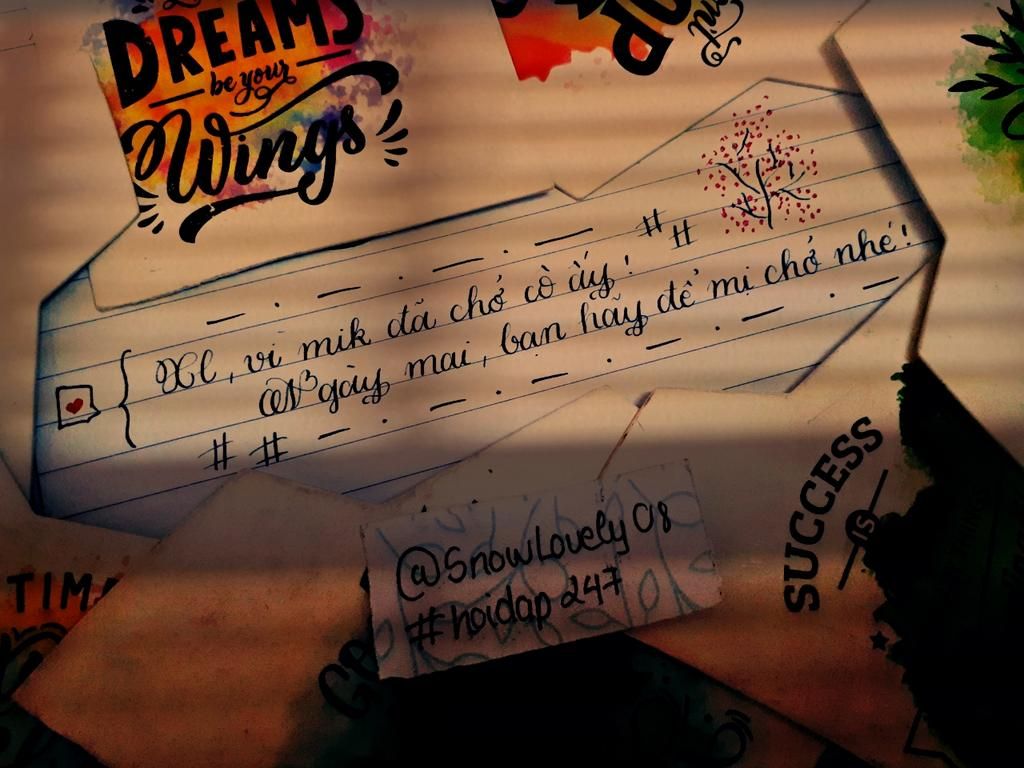 DREAMS
be your
Wings
# #
Xl, vì mik đã chở cò ấy!
Ngày mai, bạn hãy để mị chở nhé!
# #
@SnowLovely08
#hoidap247
SUCCESS
IS
TIM